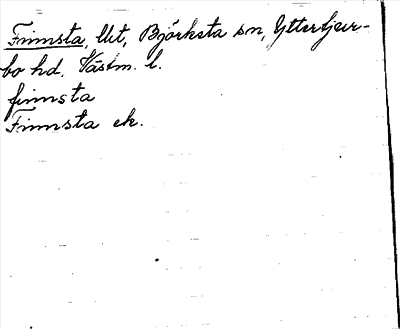 Finnsta, llet, Björksta sn, Yttertjur-
bo hd. Västm. l.
finnsta
Finnsta ek.